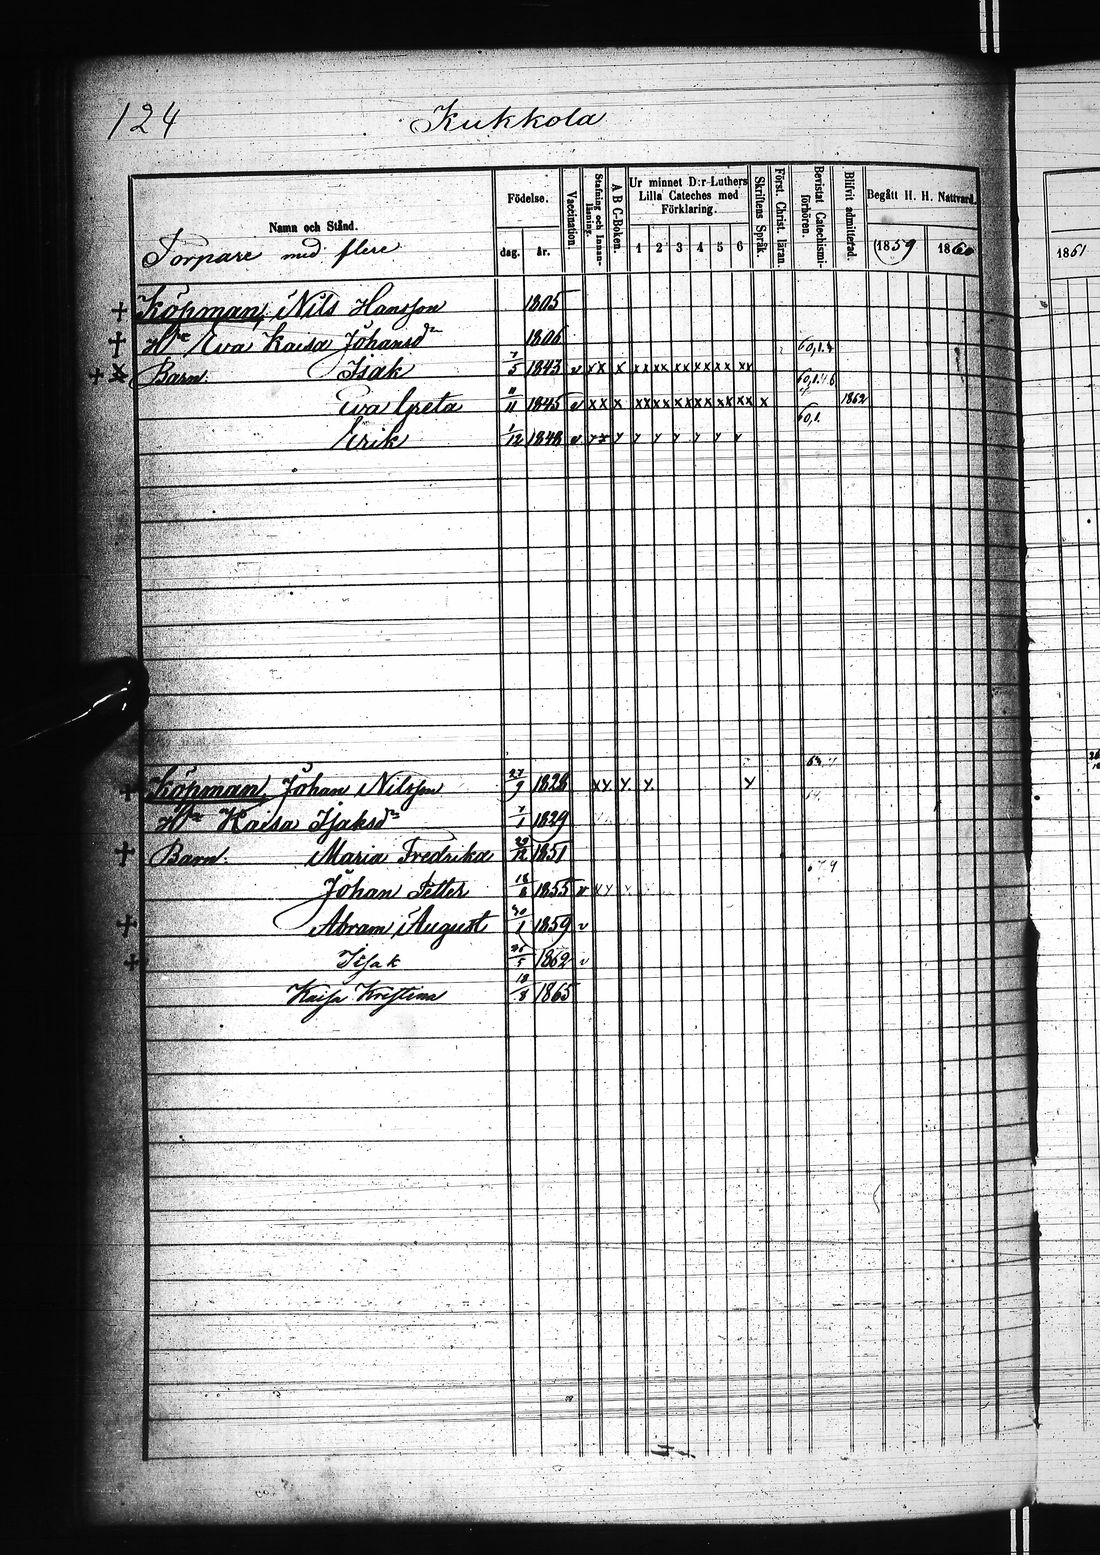 124 Kukkola
Namn och Stånd.
Torpare med flere
Födelse.
dag. år.
Vaccination.
Stafning och Innanläsning.
A B C-Boken.
Ur minnet D:r Luthers Lilla Cateches med Förklaring.
1 2 3 4 5 6
Skriftens Språk.
Först. Christ. läran.
Bevistat Catechismiförhören.
Blifvit admitterad.
Begått H. H. Nattvard.
1859 1860
1861
+ Köpman, Nils Hansson 1805
+ H:u Eva Kaisa Johansd:r 1806
+ x Barn: Isak 7/5 1843 v xx x xx xx xx xx xx xx 60,1.
Eva Greta 11/11 1845 v xx x xx xx xx xx xx xx x 1862
Erik 1/12 1848 v 60,1.
+ Köpman Johan Nilsson 27/9 1828
H:u Kaisa Isaksd:r 7/1 1829
+ Barn: Maria Fredrika 1851
Johan Petter 18/8 1855
+ Abram August 30/1 1859 v
+ Isak 1862 v
Kaisa Kristina 18/8 1865